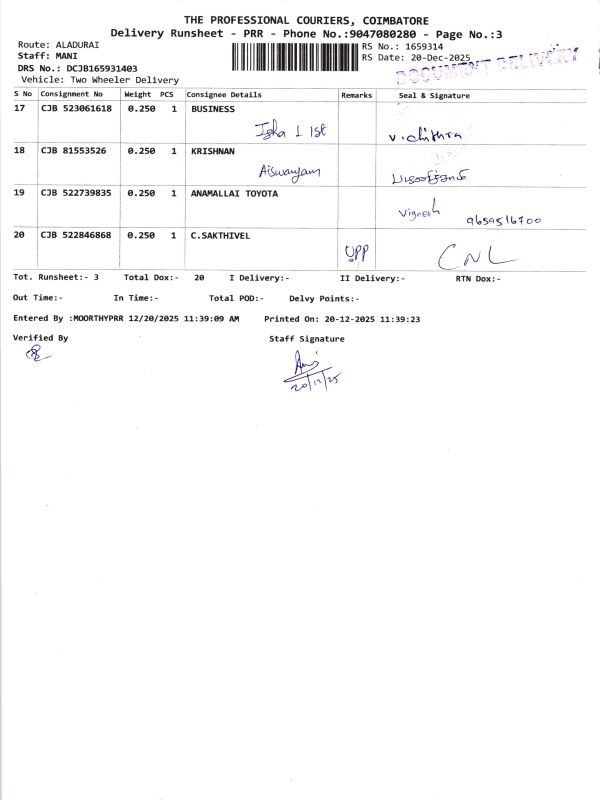 THE PROFESSIONAL COURIERS, COIMBATORE
Delivery Runsheet - PRR - Phone No.:9047080280 - Page No.:3
Route: ALADURAI
Staff: MANI
DRS No.: DCJB165931403
Vehicle: Two Wheeler Delivery
RS No.: 1659314
RS Date: 20-Dec-2025
DOCUMENT DELIVERY
S No Consignment No Weight PCS Consignee Details Remarks Seal & Signature
17 CJB 523061618 0.250 1 BUSINESS
V. Chithra
18 CJB 81553526 0.250 1 KRISHNAN
Aiswaryam
19 CJB 522739835 0.250 1 ANAMALLAI TOYOTA
Vignesh 9659516700
20 CJB 522846868 0.250 1 C.SAKTHIVEL
UPP CNL
Tot. Runsheet:- 3 Total Dox:- 20 I Delivery:- II Delivery:- RTN Dox:-
Out Time:- In Time:- Total POD:- Delvy Points:-
Entered By :MOORTHYPRR 12/20/2025 11:39:09 AM Printed On: 20-12-2025 11:39:23
Verified By Staff Signature
20/12/25